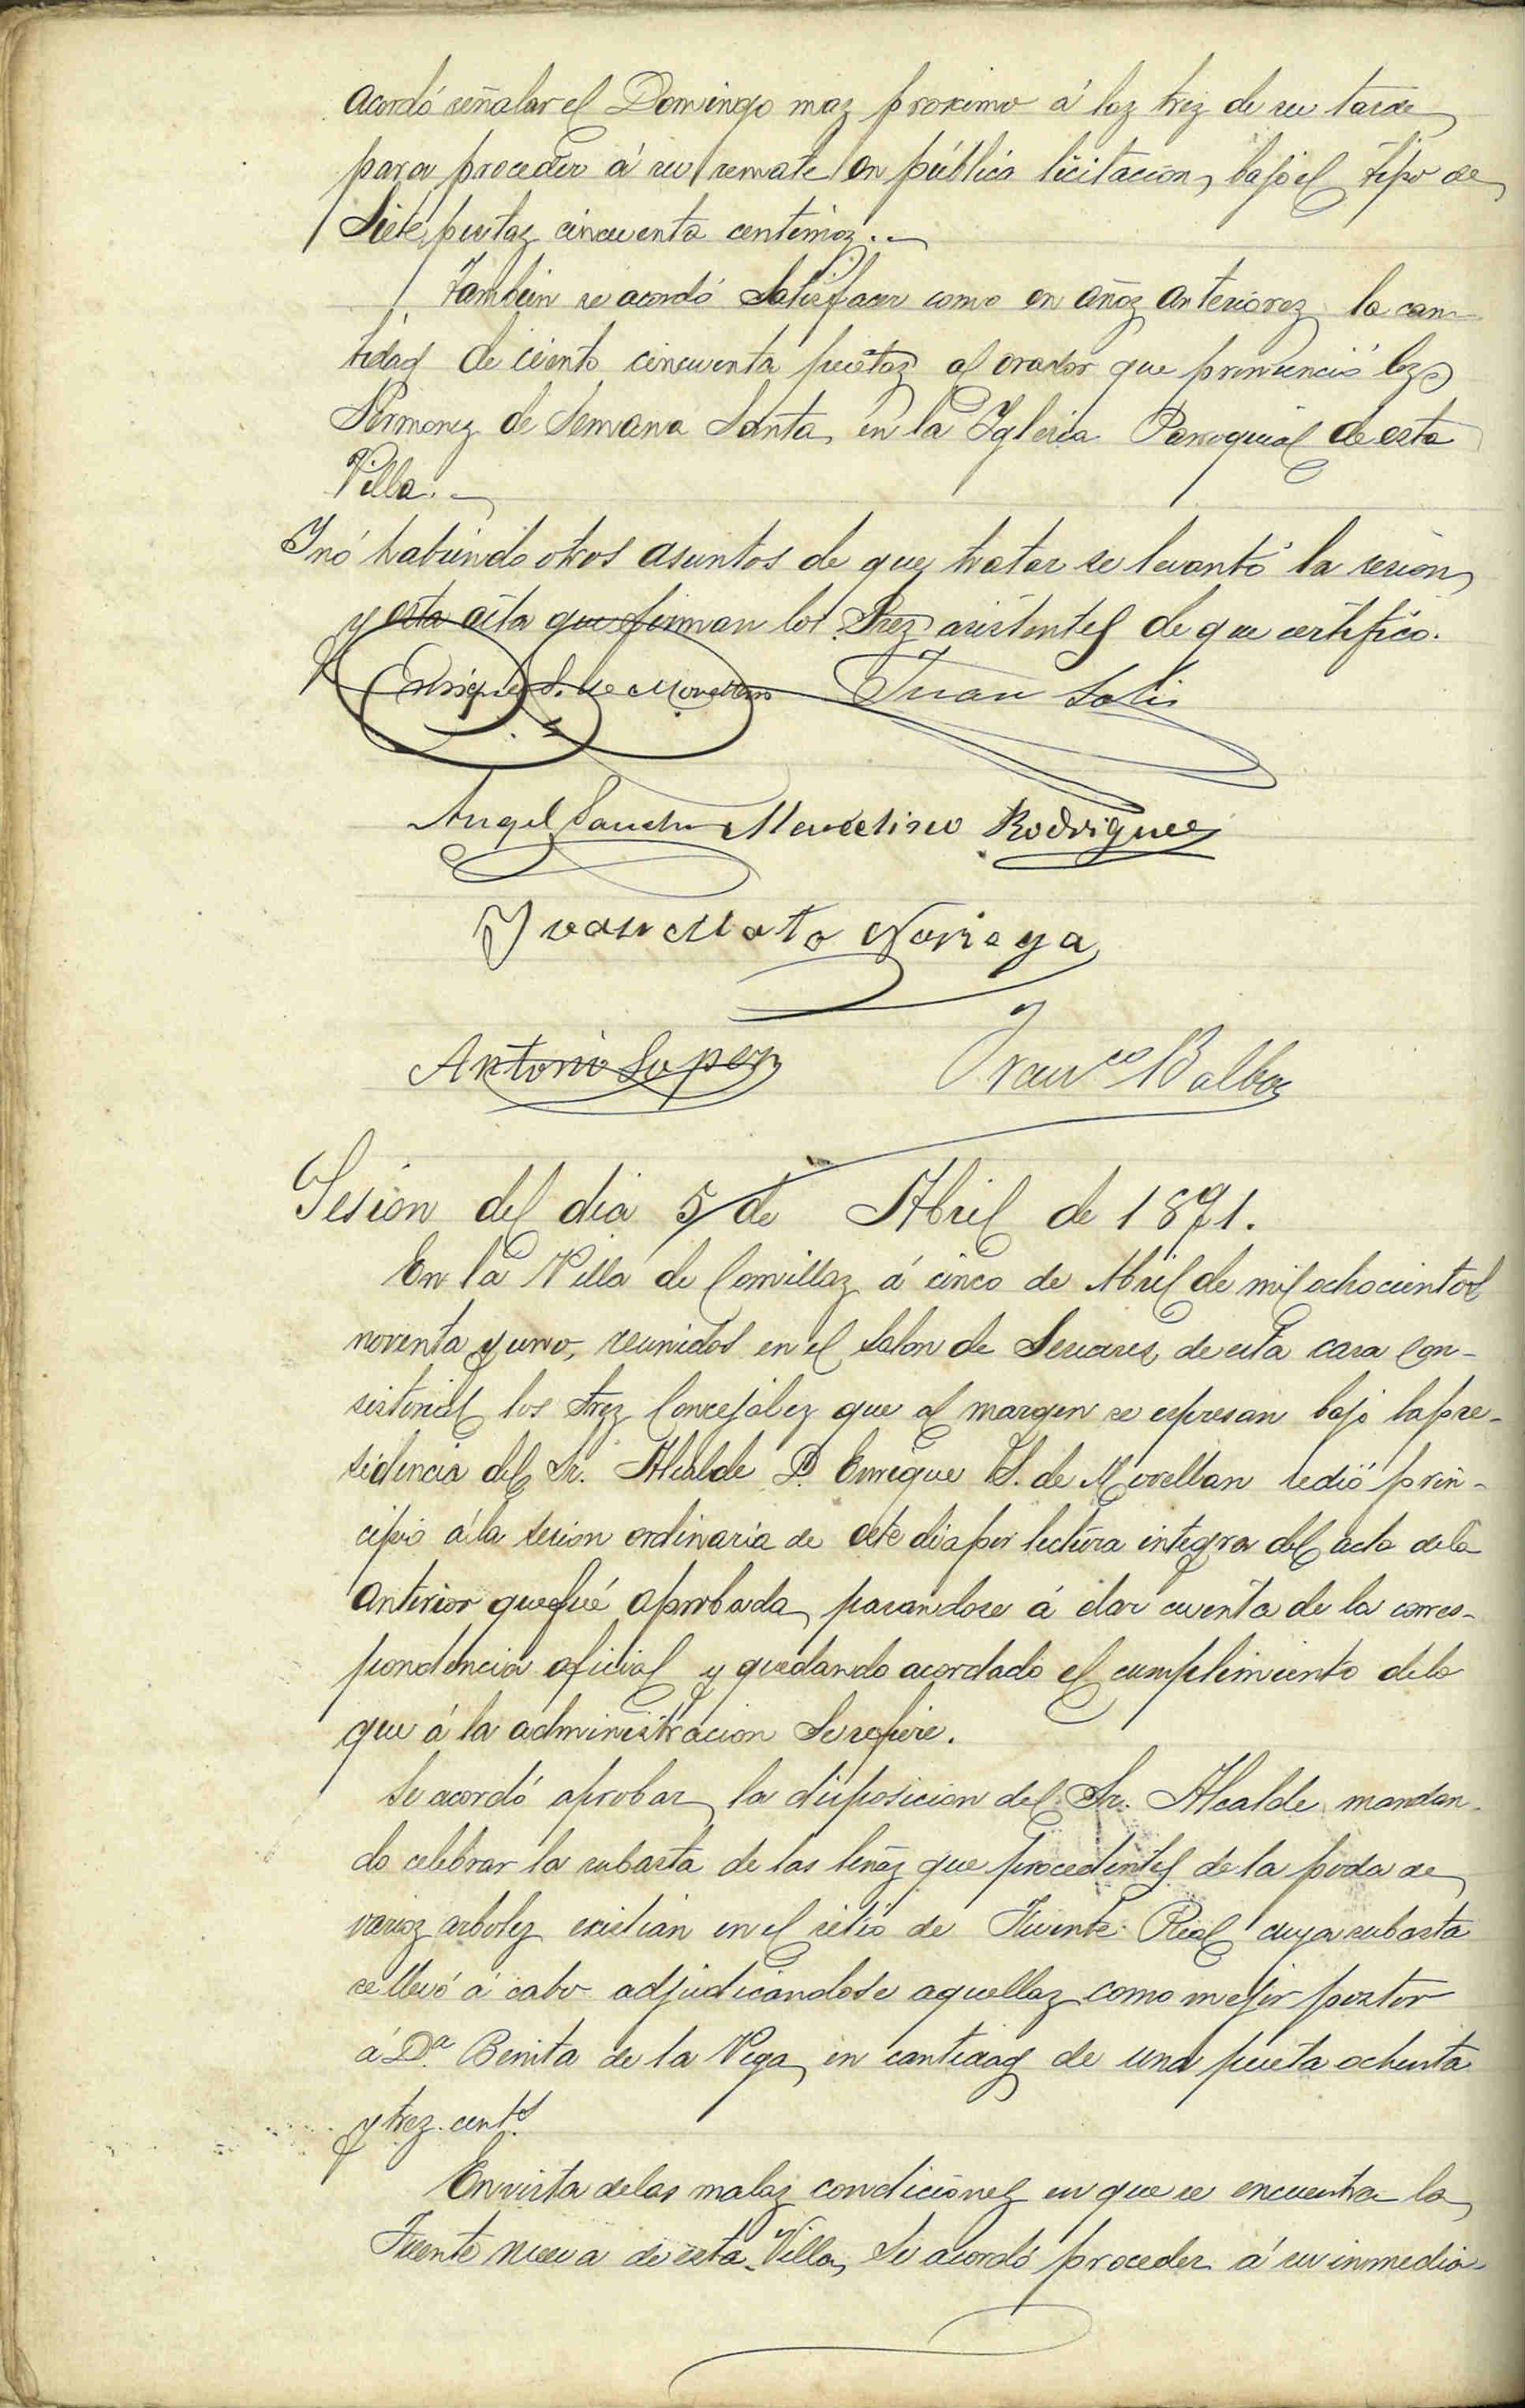 acordó señalar el Domingo maz proximo á laz trez de su tarde
para proceder á su remate en pública licitacion, bajo el tipo de
Siete pesetaz cincuenta centimoz.
Tambien se acordó Satisfacer como en añoz anteriorez la can-
tidad de ciento cincuenta pesetaz al orador que pronunció loz
Sermonez de Semana Santa, en la Yglesia Parroquial de esta
Villa.
Y nó habiendo otros asuntos de que tratar se levantó la sesion,
y esta acta que firman los Srez asistentes de que certifico.
Enrique S. de Movellan Juan Solis
Angel Sanchez Marcelino Rodriguez
Juan Mata Noriega
Antonio Lopez Franco Balboa
Sesion del dia 5 de Abril de 1891.
En la Villa de Comillaz á cinco de Abril de mil ochocientos
noventa y uno, reunidos en el Salon de Sesiones de esta casa Con-
sistorial los Srez Concejalez que al margen se espresan bajo la pre-
sidencia del Sr. Alcalde D. Enrique S. de Movellan se dió prin-
cipio á la sesion ordinaria de este dia por lectura integra del acta de la
anterior que fué aprobada, pasandose á dar cuenta de la corres-
pondencia oficial y quedando acordado el cumplimiento de lo
que á la administracion Se refiere.
Se acordó aprobar, la disposicion del Sr. Alcalde mandan-
do celebrar la subasta de las leñaz que procedentes de la poda de
varioz arbolez existian en el sitio de Fuente Real cuya subasta
se llevó á cabo adjudicandose aquellaz como mejor poztor
á Dª Benita de la Vega, en cantidad de una peseta ochenta
y trez cents.
En vista de las malaz condicionez en que se encuentra la
Fuente nueva de esta Villa, Se acordó proceder á su inmedia-